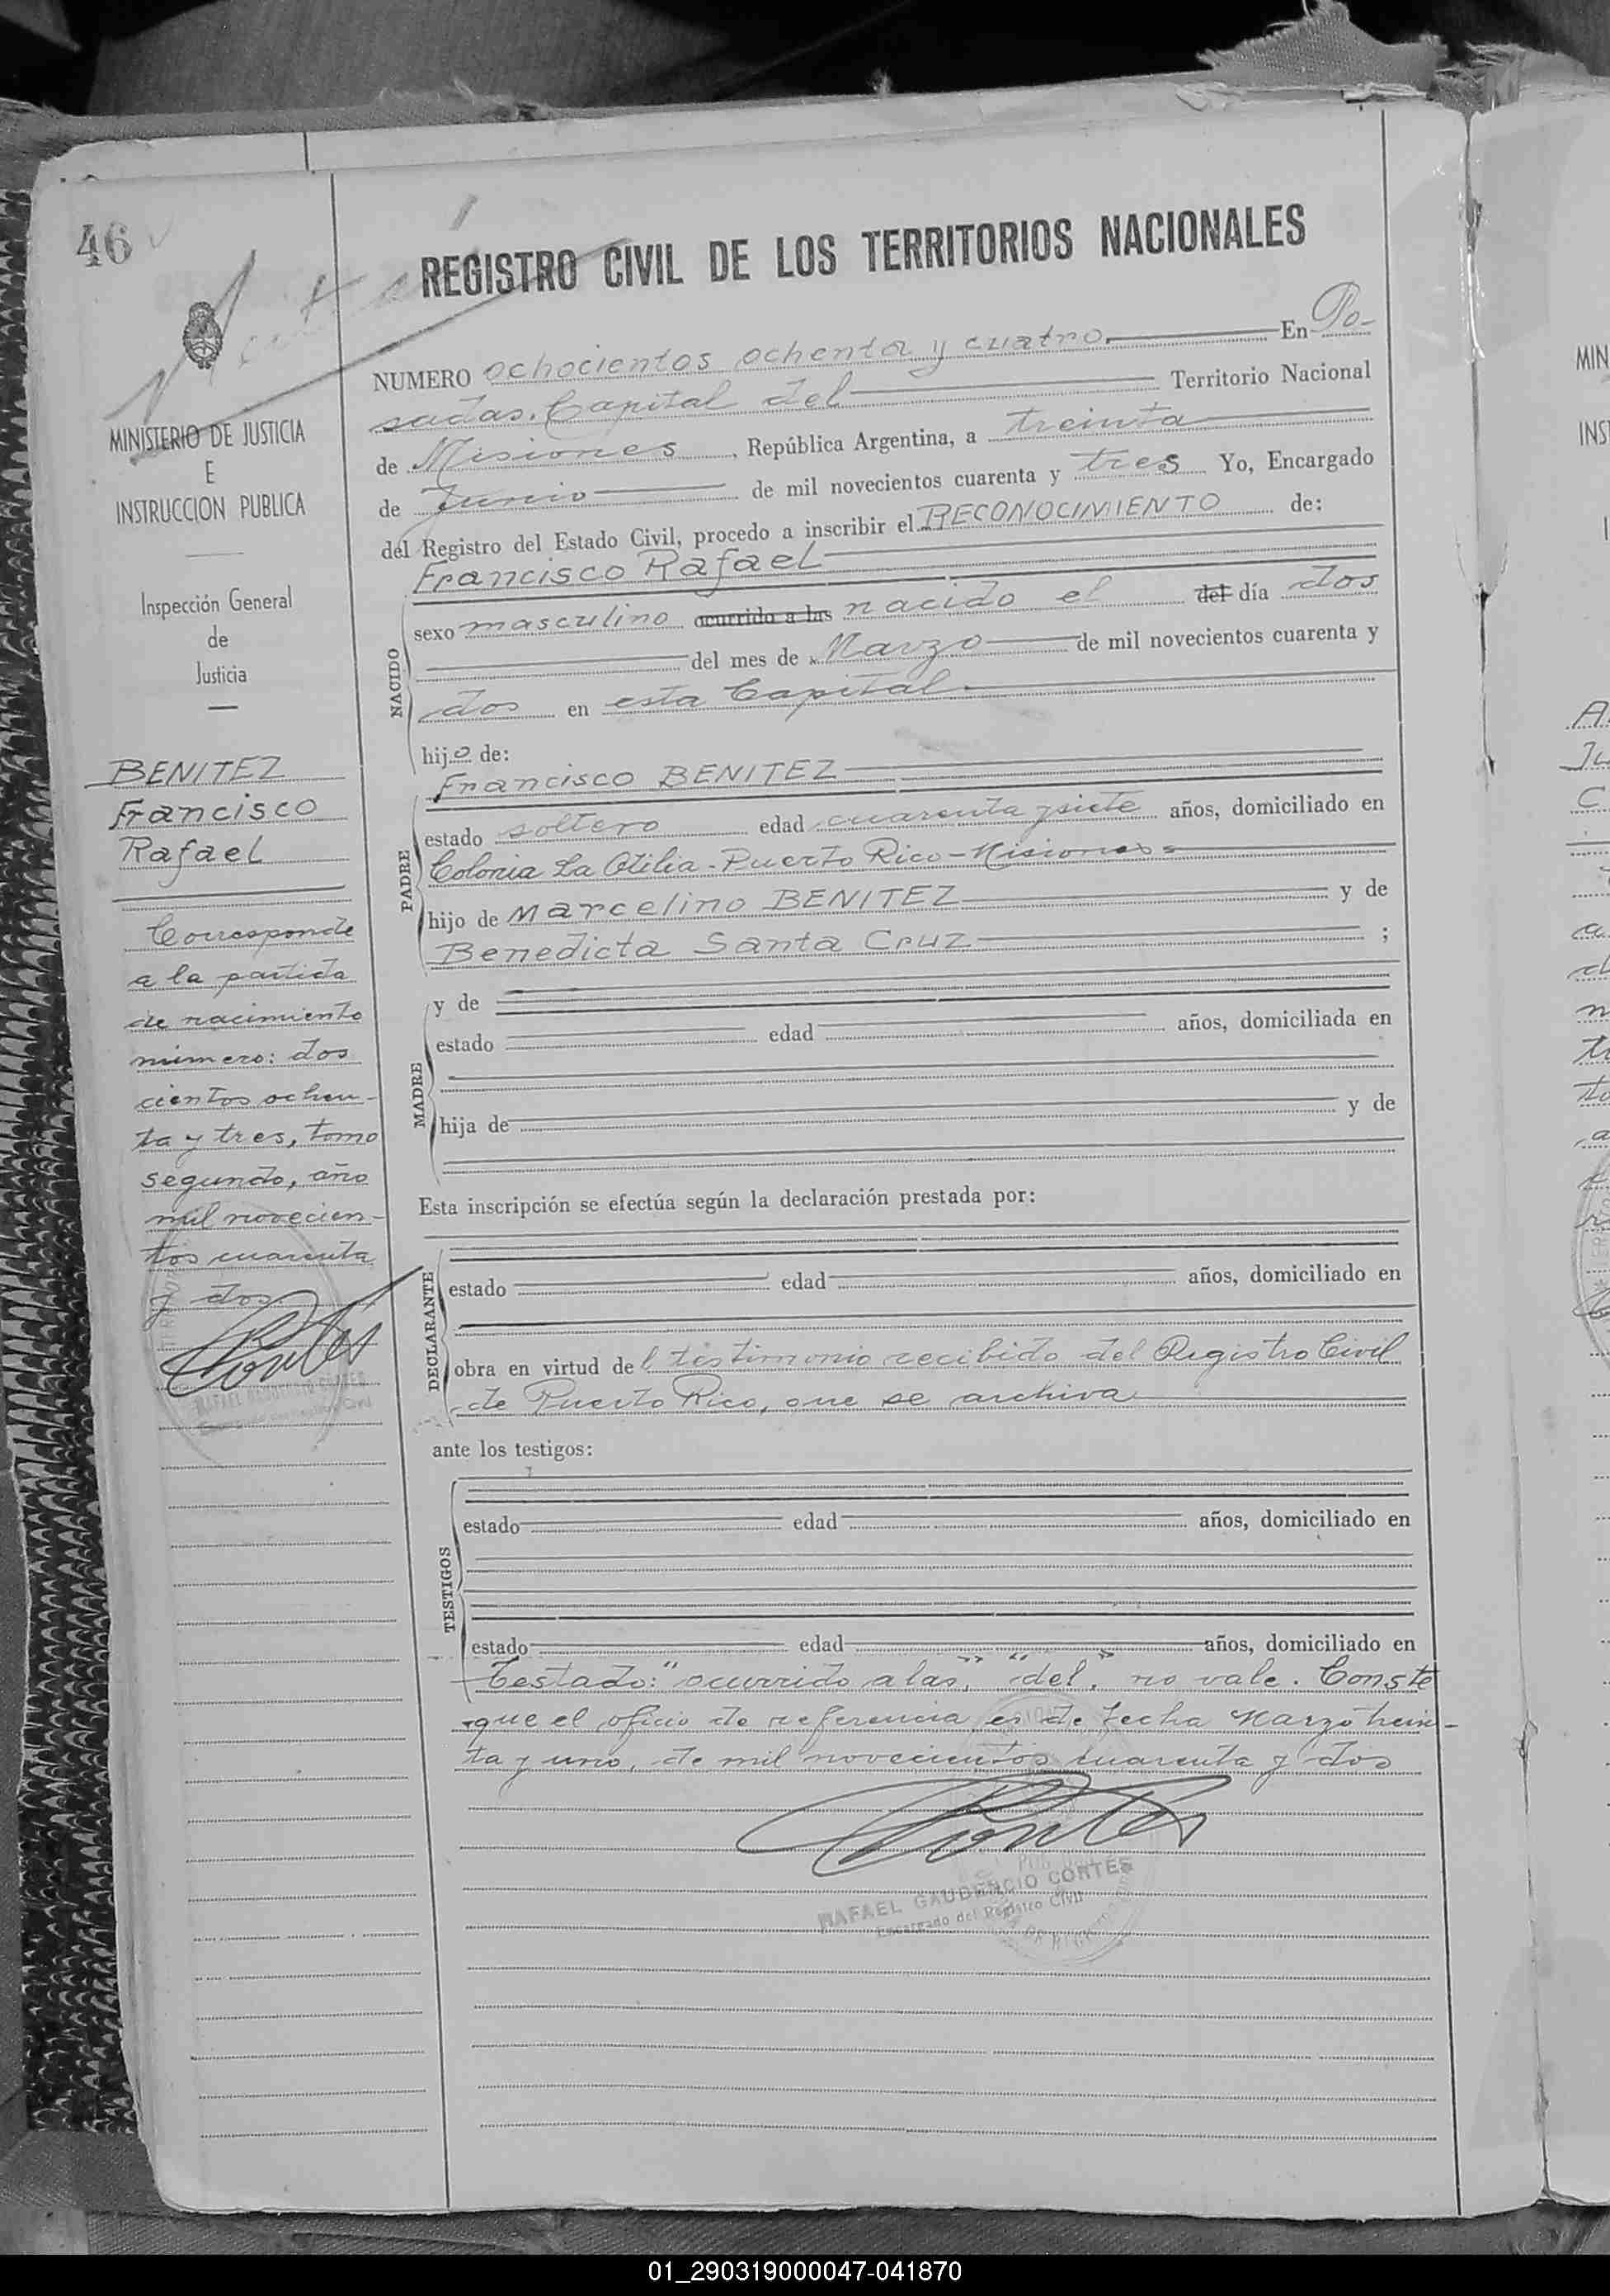 46
REGISTRO CIVIL DE LOS TERRITORIOS NACIONALES
MINISTERIO DE JUSTICIA
E
INSTRUCCION PUBLICA
Inspección General
de
Justicia
BENITEZ
Francisco
Rafael
Corresponde
a la partida
de nacimiento
número: dos
cientos ochen-
ta y tres, tomo
segundo, año
mil novecien-
tos cuarenta
y dos
NUMERO ochocientos ochenta y cuatro. En Po-
sadas. Capital del Territorio Nacional
de Misiones, República Argentina, a treinta
de Junio de mil novecientos cuarenta y tres Yo, Encargado
del Registro del Estado Civil, procedo a inscribir el RECONOCIMIENTO de:
Francisco Rafael
NACIDO
sexo masculino ocurrido a las nacido el del día dos
del mes de Marzo de mil novecientos cuarenta y
dos en esta Capital.
hijo de:
Francisco BENITEZ
PADRE
estado soltero edad cuarenta y siete años, domiciliado en
Colonia La Otilia - Puerto Rico - Misiones
hijo de Marcelino BENITEZ y de
Benedicta Santa Cruz ;
MADRE
y de
estado edad años, domiciliada en
hija de y de
Esta inscripción se efectúa según la declaración prestada por:
DECLARANTE
estado edad años, domiciliado en
obra en virtud del testimonio recibido del Registro Civil
de Puerto Rico, que se archiva
ante los testigos:
TESTIGOS
estado edad años, domiciliado en
estado edad años, domiciliado en
Testado: "ocurrido a las", "del", no vale. Conste
que el oficio de referencia es de fecha Marzo trein-
ta y uno, de mil novecientos cuarenta y dos
RAFAEL GAUDENCIO CORTÉS
Encargado del Registro Civil
01_290319000047-041870